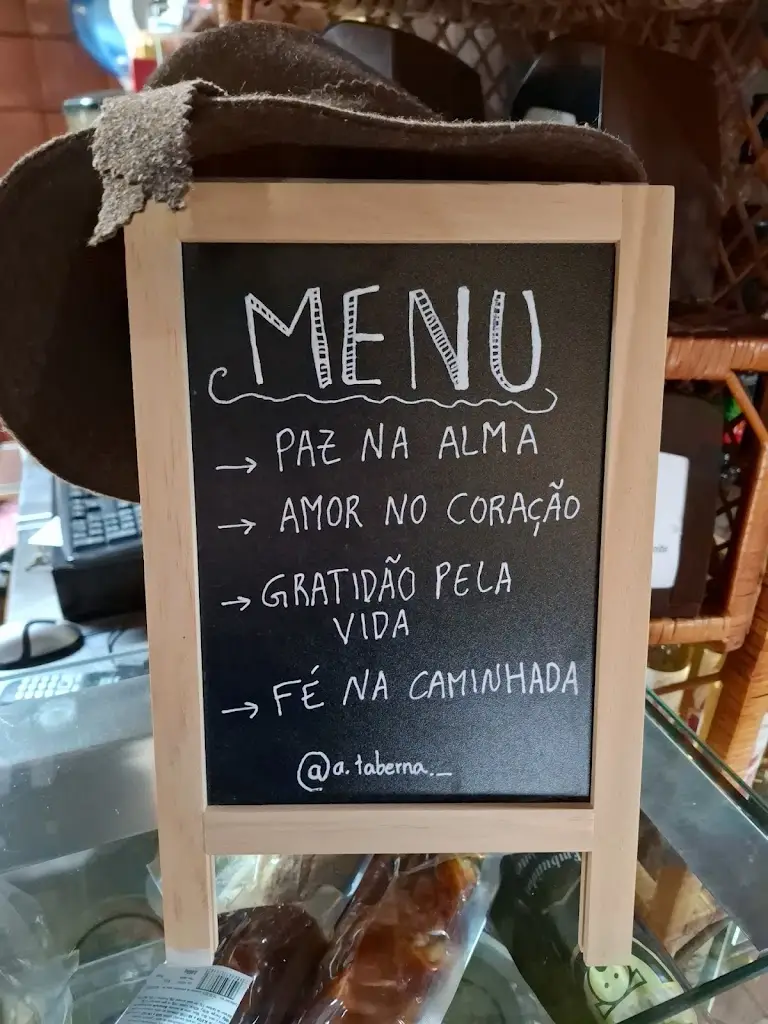 MENU
→ PAZ NA ALMA
→ AMOR NO CORAÇÃO
→ GRATIDÃO PELA
VIDA
→ FÉ NA CAMINHADA
@a.taberna._